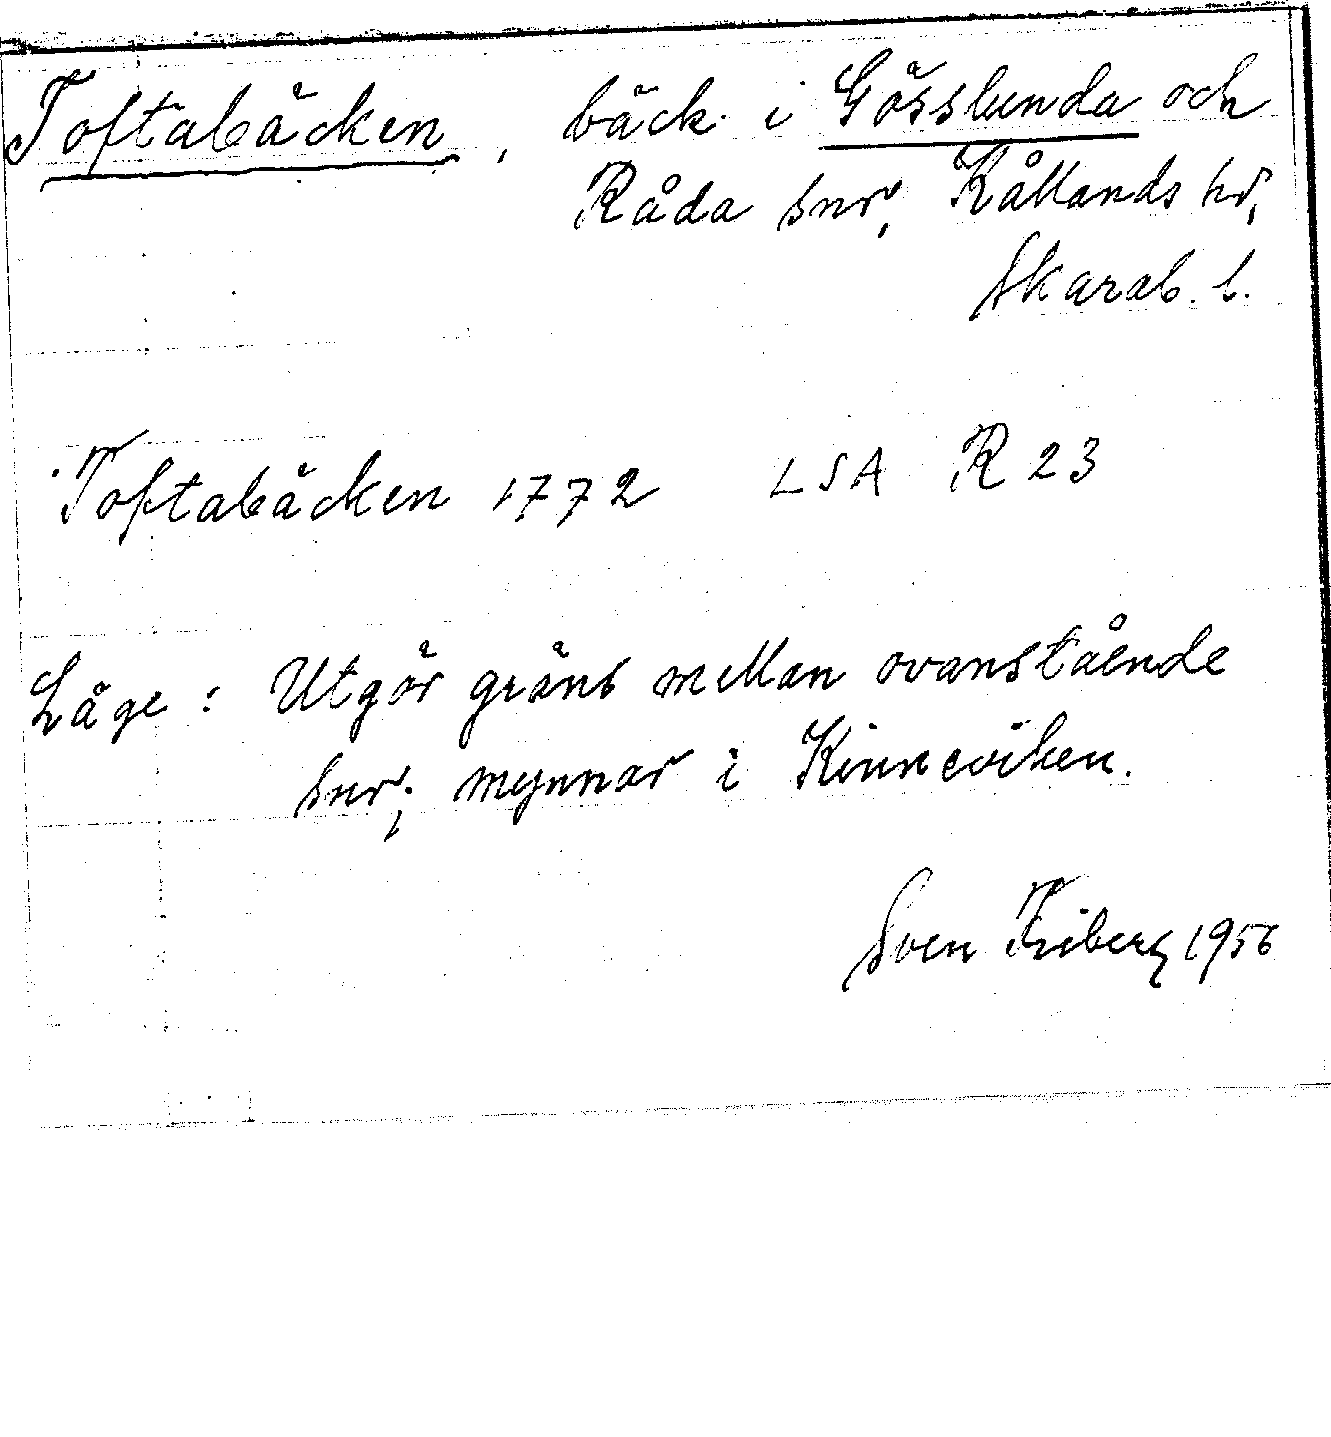 Toftabäcken, bäck i Gösslunda och
Råda snr, Kållands hd,
Skarab. l.
Toftabäcken 1772 LSA R 23
Läge: Utgör gräns mellan ovanstående
snr; mynnar i Kinneviken.
Sven Friberg 1956